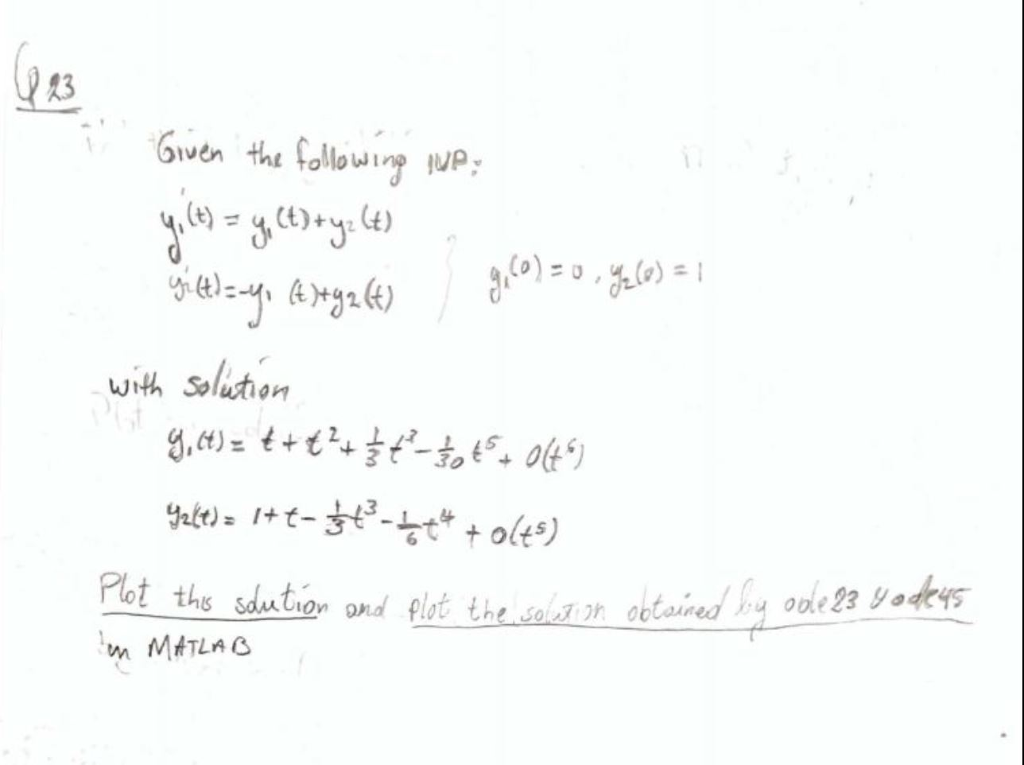 Q 23
Given the following IVP:
y₁'(t) = y₁(t)+y₂(t)
y₂'(t)=-y₁(t)+y₂(t) } y₁(0)=0, y₂(0)=1
with solution
y₁(t) = t + t² + 1/3 t³ - 1/30 t⁵ + O(t⁶)
y₂(t) = 1+t - 1/3 t³ - 1/6 t⁴ + o(t⁵)
Plot this solution and plot the solution obtained by ode23 & ode45
in MATLAB